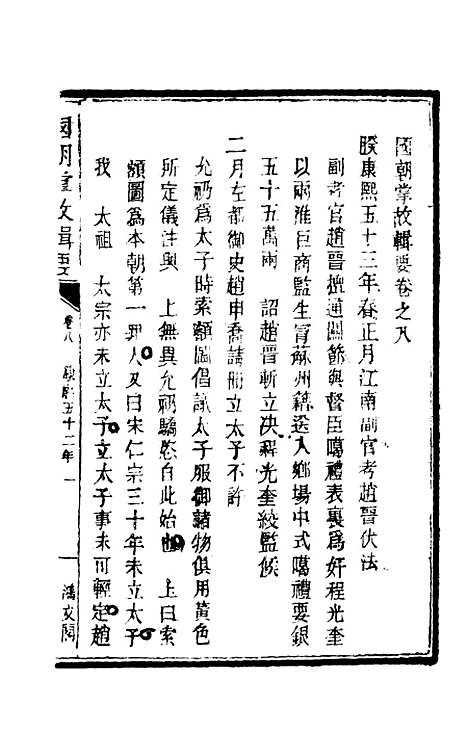 國朝掌故輯要卷之八
癸康熙五十三年春正月江南副官考趙晉伏法
副考官趙晉擅通關節與督臣噶禮表裏爲奸程光奎
以兩淮巨商監生冐蘇州籍選入鄉場中式噶禮要銀
五十五萬兩　詔趙晉斬立决程光奎絞監候
二月左都御史趙申喬請冊立太子不許
允礽爲太子時索額圖倡議太子服御諸物俱用黃色
所定儀注與　上無異允礽驕愆自此始也　上曰索
額圖爲本朝第一罪人又曰宋仁宗三十年未立太子
我　太祖　太宗亦未立太子立太子事未可輕定趙
國朝掌故輯要
卷八　康熙五十二年　一
鴻文閣